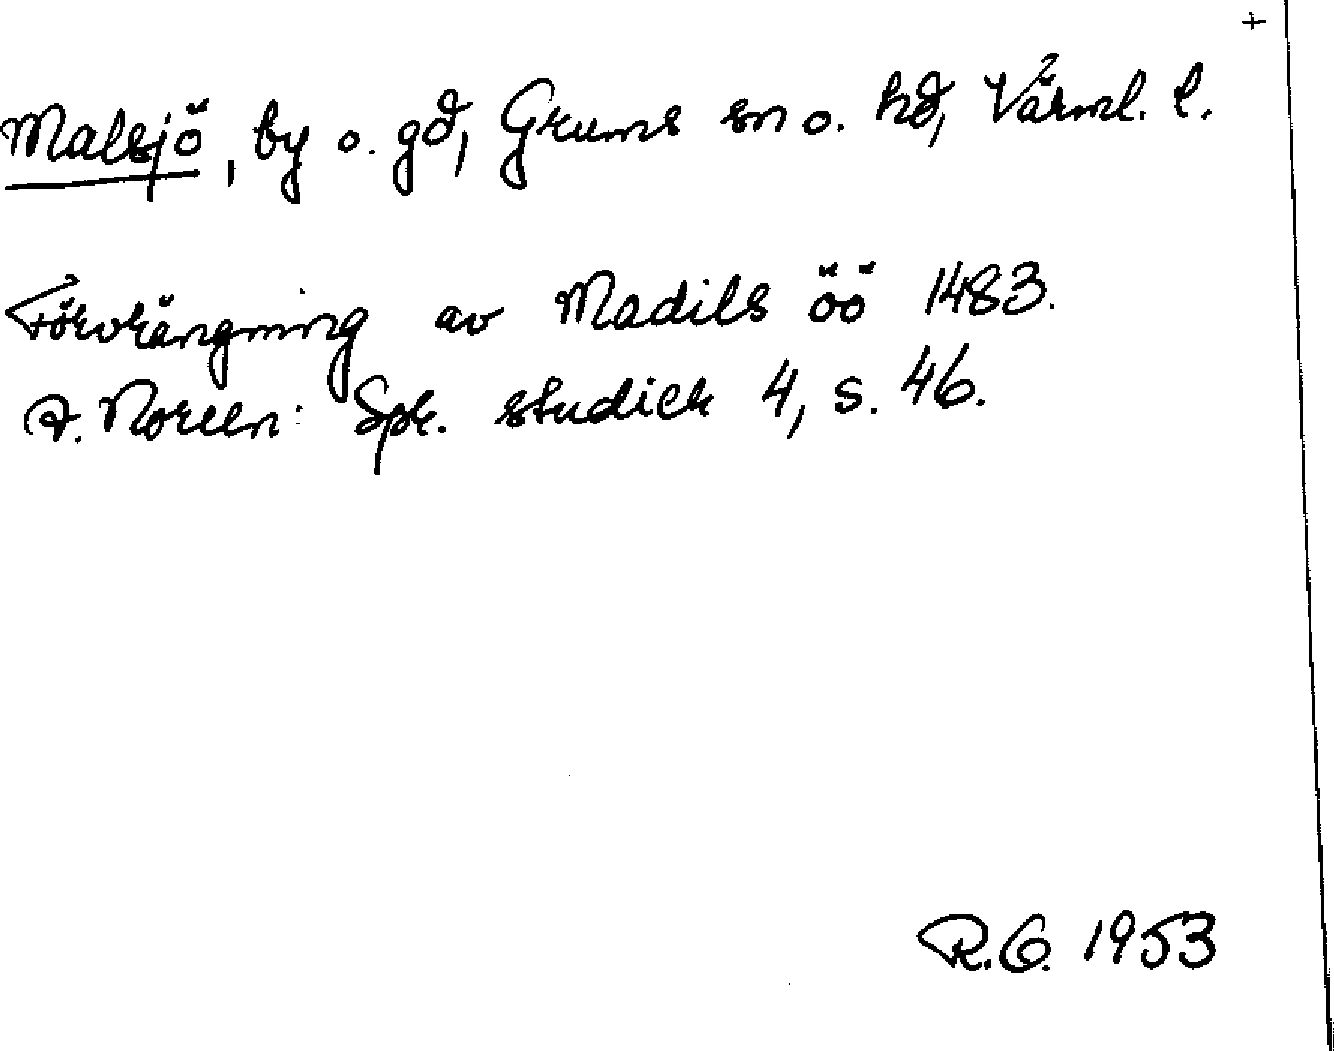 +
Malsjö, by o. gd, Grums sn o. hd, Värml. l.
Förvrängning av Madils öö 1483.
A. Noreen: Spr. studier 4, s. 46.
R.G. 1953